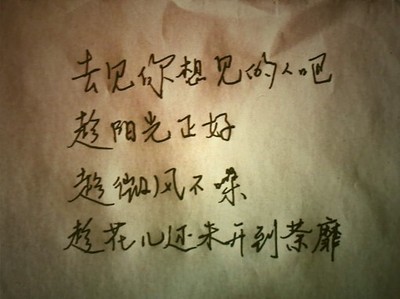 去见你想见的人吧
趁阳光正好
趁微风不噪
趁花儿还未开到荼靡